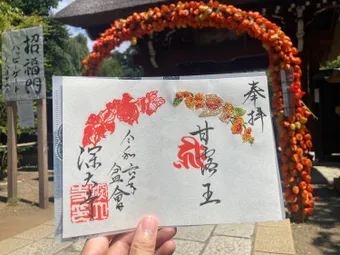 招福門
奉拝
甘露王
令和六年
盆會
深大寺